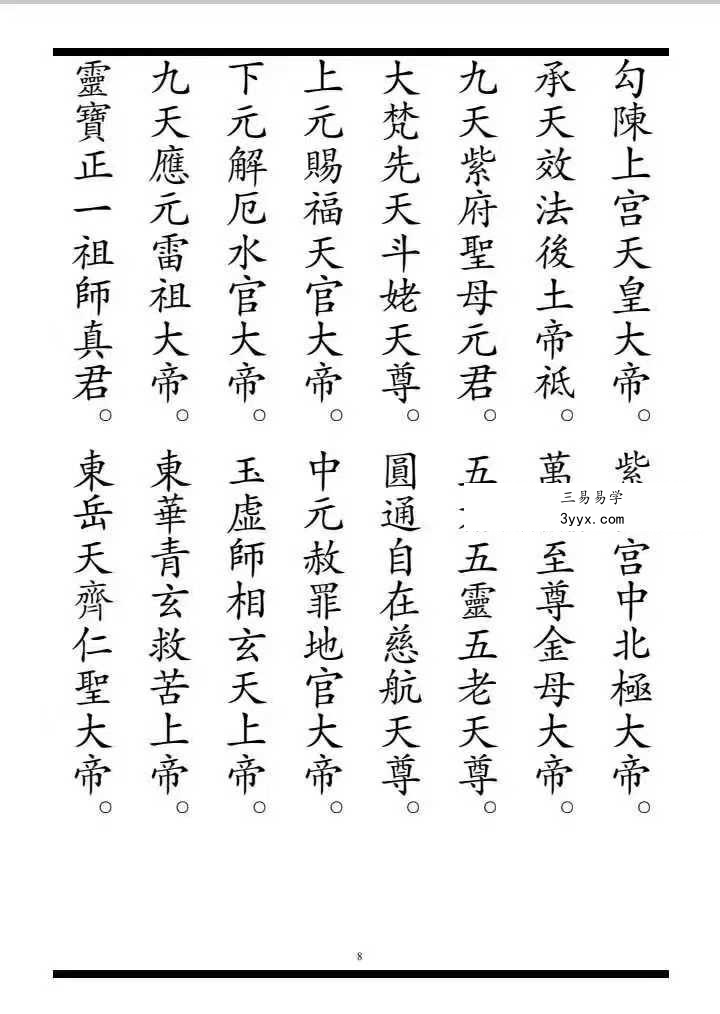 勾陳上宮天皇大帝。紫宮中北極大帝。
承天效法後土帝祇。萬至尊金母大帝。
九天紫府聖母元君。五五靈五老天尊。
大梵先天斗姥天尊。圓通自在慈航天尊。
上元賜福天官大帝。中元赦罪地官大帝。
下元解厄水官大帝。玉虛師相玄天上帝。
九天應元雷祖大帝。東華青玄救苦上帝。
靈寶正一祖師真君。東岳天齊仁聖大帝。
三易易学
3yyx.com
8